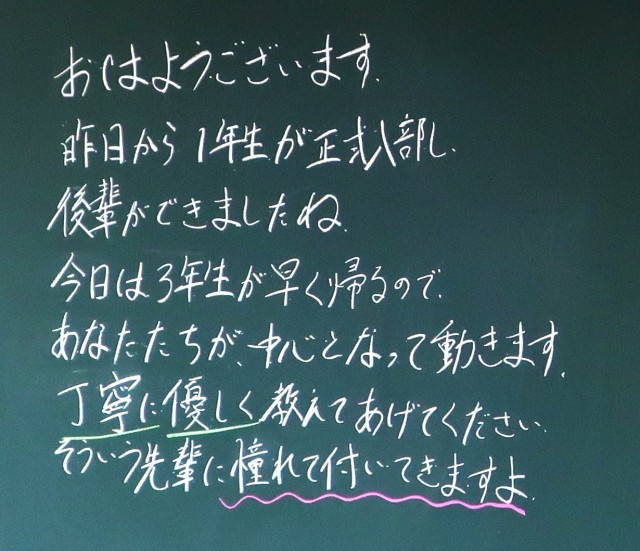 おはようございます.
昨日から1年生が正式入部し、
後輩ができましたね.
今日は3年生が早く帰るので、
あなたたちが、中心となって動きます.
丁寧に優しく教えてあげてください.
そういう先輩に憧れて付いてきますよ.